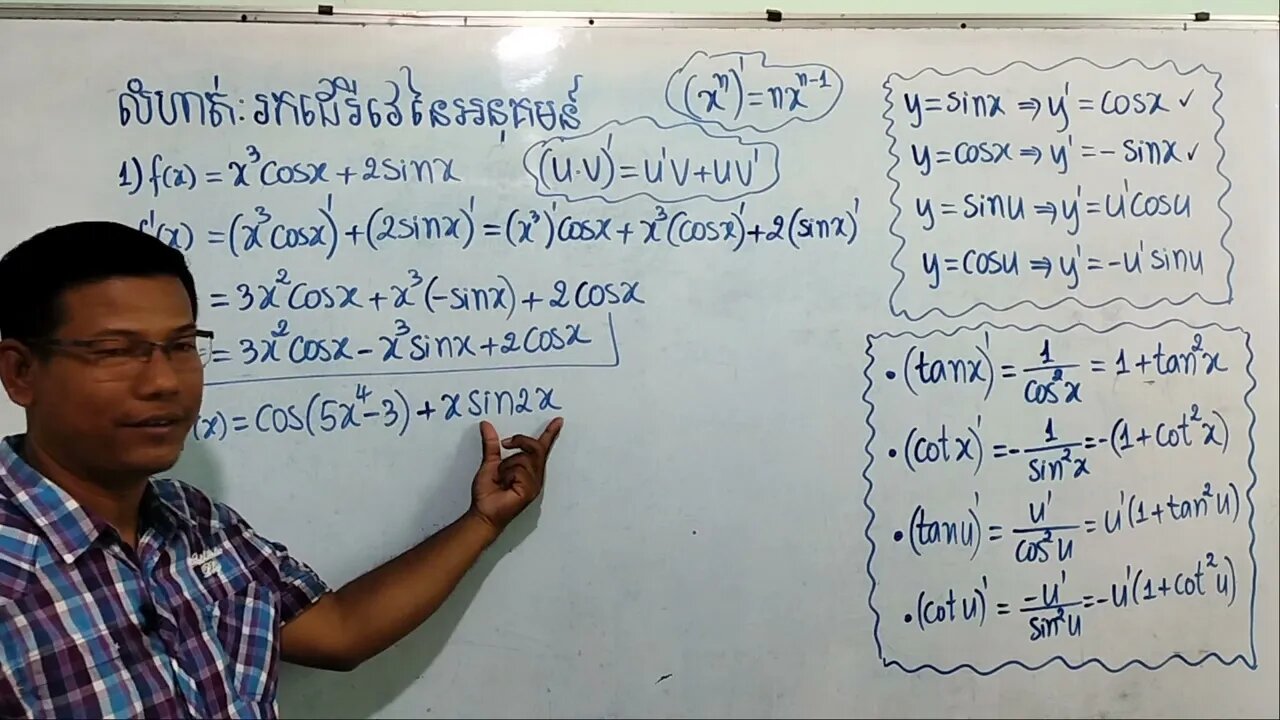 លំហាត់: រកដេរីវេនៃអនុគមន៍
(xⁿ)' = nxⁿ⁻¹
1) f(x) = x³cosx + 2sinx
(u·v)' = u'v + uv'
f'(x) = (x³cosx)' + (2sinx)' = (x³)'cosx + x³(cosx)' + 2(sinx)'
= 3x²cosx + x³(-sinx) + 2cosx
= 3x²cosx - x³sinx + 2cosx
(x) = cos(5x⁴-3) + x sin2x
y = sinx ⇒ y' = cosx ✓
y = cosx ⇒ y' = -sinx ✓
y = sinu ⇒ y' = u'cosu
y = cosu ⇒ y' = -u'sinu
• (tanx)' = 1/cos²x = 1 + tan²x
• (cotx)' = -1/sin²x = -(1 + cot²x)
• (tanu)' = u'/cos²u = u'(1 + tan²u)
• (cotu)' = -u'/sin²u = -u'(1 + cot²u)